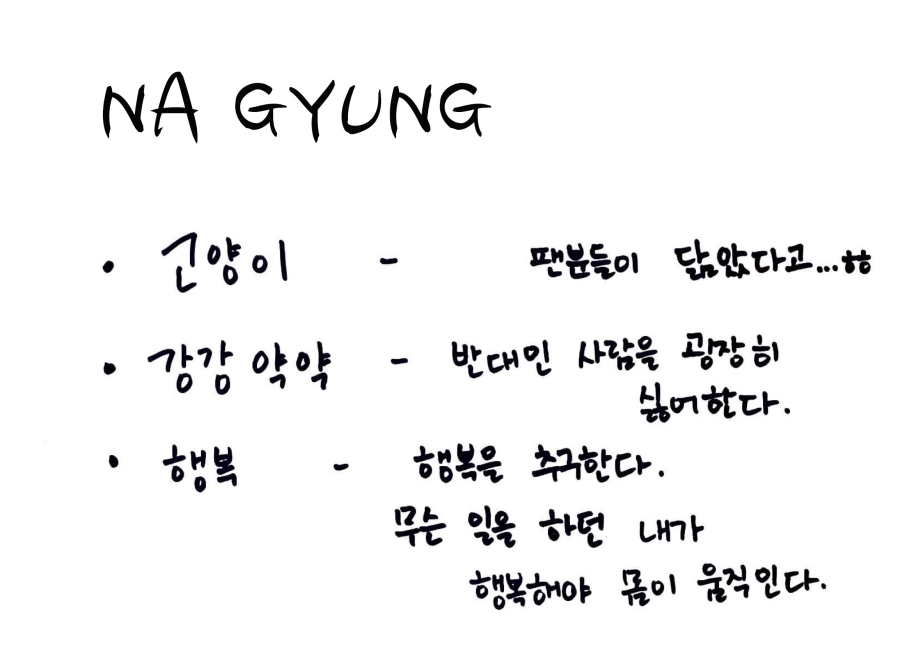 NA GYUNG
• 고양이 - 팬분들이 닮았다고...ㅎㅎ
• 강강약약 - 반대인 사람을 굉장히
싫어한다.
• 행복 - 행복을 추구한다.
무슨 일을 하던 내가
행복해야 몸이 움직인다.